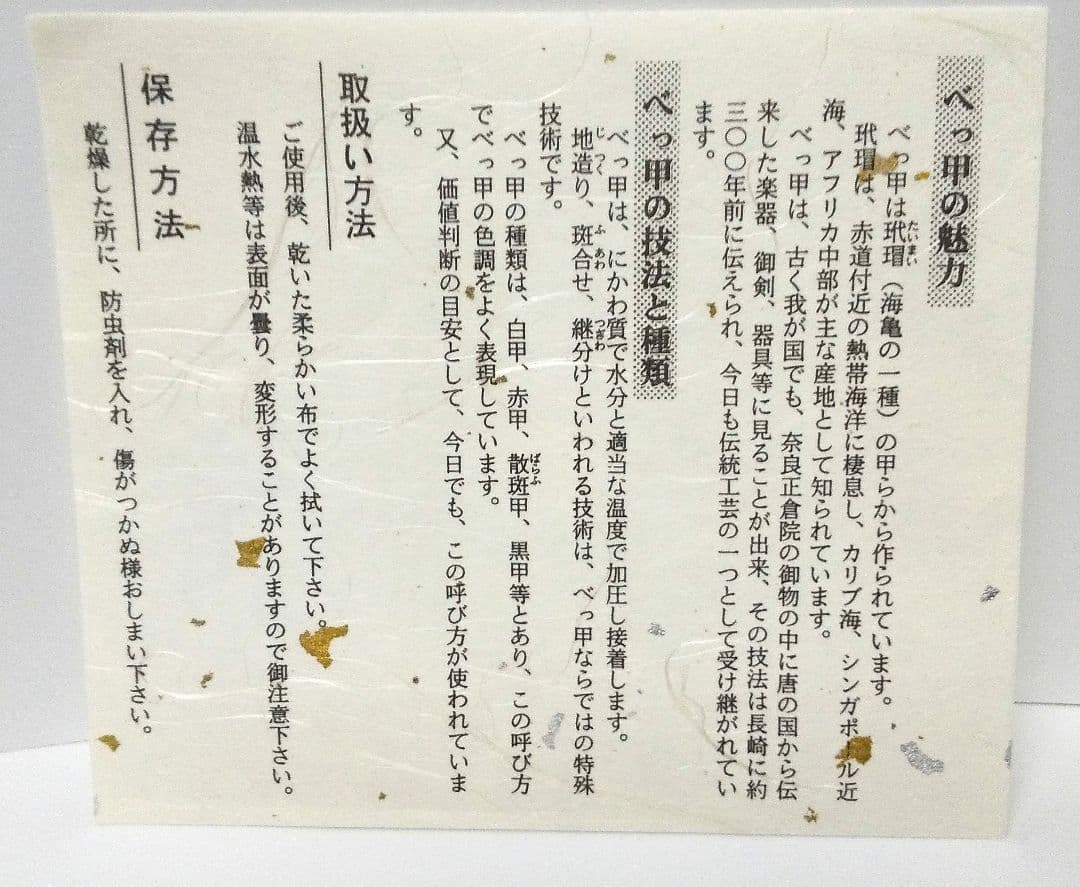 べっ甲の魅力
べっ甲は玳瑁（海亀の一種）の甲らから作られています。
たいまい
玳瑁は、赤道付近の熱帯海洋に棲息し、カリブ海、シンガポール近
海、アフリカ中部が主な産地として知られています。
べっ甲は、古く我が国でも、奈良正倉院の御物の中に唐の国から伝
来した楽器、御剣、器具等に見ることが出来、その技法は長崎に約
三〇〇年前に伝えられ、今日も伝統工芸の一つとして受け継がれてい
ます。
べっ甲の技法と種類
べっ甲は、にかわ質で水分と適当な温度で加圧し接着します。
地造り、斑合せ、継分けといわれる技術は、べっ甲ならではの特殊
じ つく ふ あわ つぎわ
技術です。
べっ甲の種類は、白甲、赤甲、散斑甲、黒甲等とあり、この呼び方
ばらふ
でべっ甲の色調をよく表現しています。
又、価値判断の目安として、今日でも、この呼び方が使われていま
す。
取扱い方法
ご使用後、乾いた柔らかい布でよく拭いて下さい。
温水熱等は表面が曇り、変形することがありますので御注意下さい。
保存方法
乾燥した所に、防虫剤を入れ、傷がつかぬ様おしまい下さい。